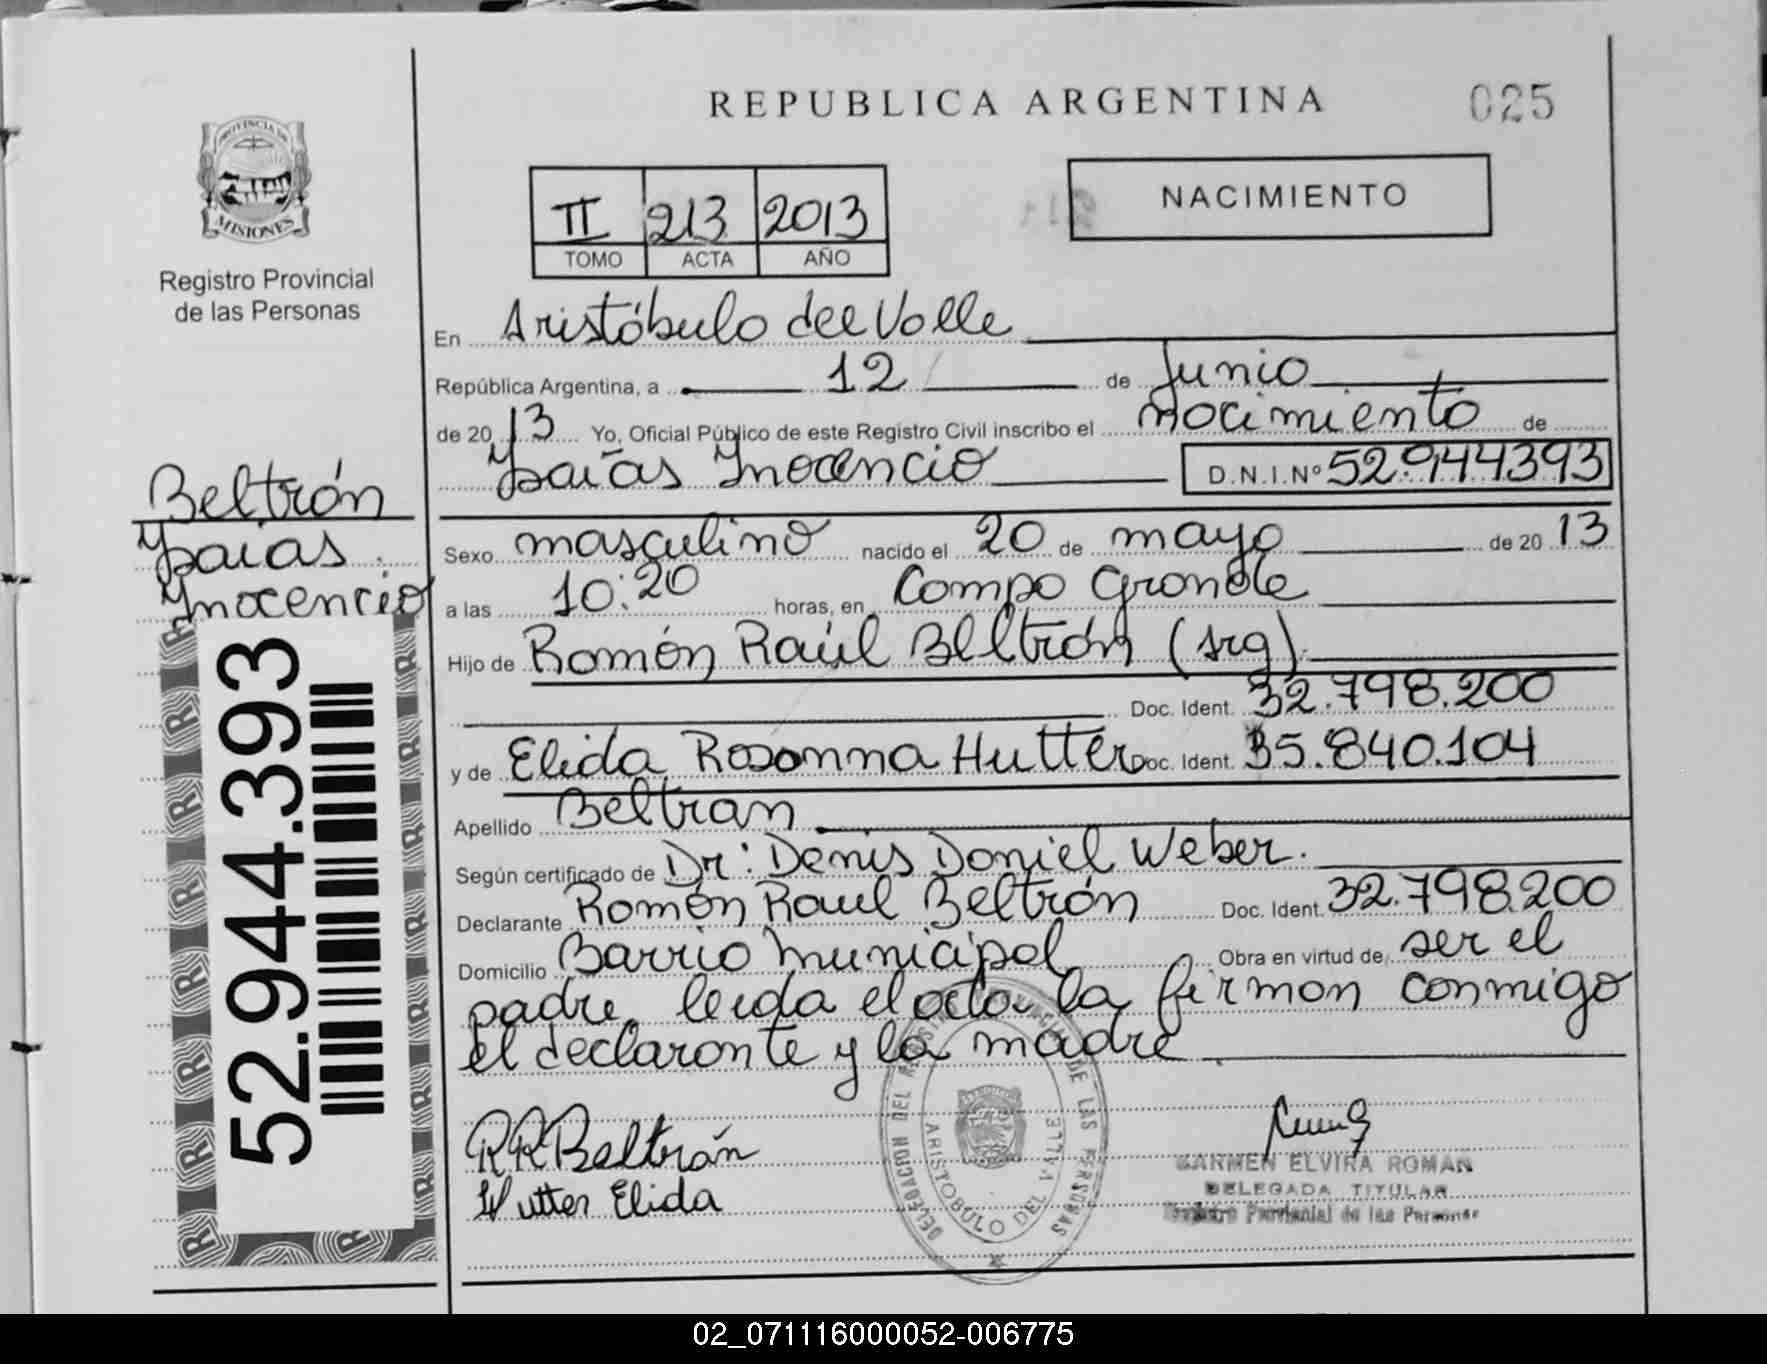 REPUBLICA ARGENTINA
025
PROVINCIA DE
MISIONES
Registro Provincial
de las Personas
II 213 2013
TOMO ACTA AÑO
NACIMIENTO
En Aristóbulo del Valle
República Argentina, a 12 de Junio
de 2013 Yo, Oficial Público de este Registro Civil inscribo el nacimiento de
Isaías Inocencio D.N.I.Nº 52.944393
Beltrán
Isaias
Inocencio
52.944.393
Sexo masculino nacido el 20 de mayo de 2013
a las 10:20 horas, en Campo Grande
Hijo de Ramón Raúl Beltrán (Arg)
Doc. Ident. 32.798.200
y de Elida Rosanna Hutter Doc. Ident. 35.840.104
Apellido Beltran
Según certificado de Dr: Denis Daniel Weber.
Declarante Ramón Raul Beltrán Doc. Ident. 32.798.200
Domicilio Barrio Municipal Obra en virtud de ser el
padre, leida el acta la firman conmigo
el declarante y la madre
RRBeltrán
Hutter Elida
DE LAS PERSONAS
DELEGACION DEL
ARISTOBULO DEL VALLE
CARMEN ELVIRA ROMAN
DELEGADA TITULAR
Registro Provincial de las Personas
02_071116000052-006775